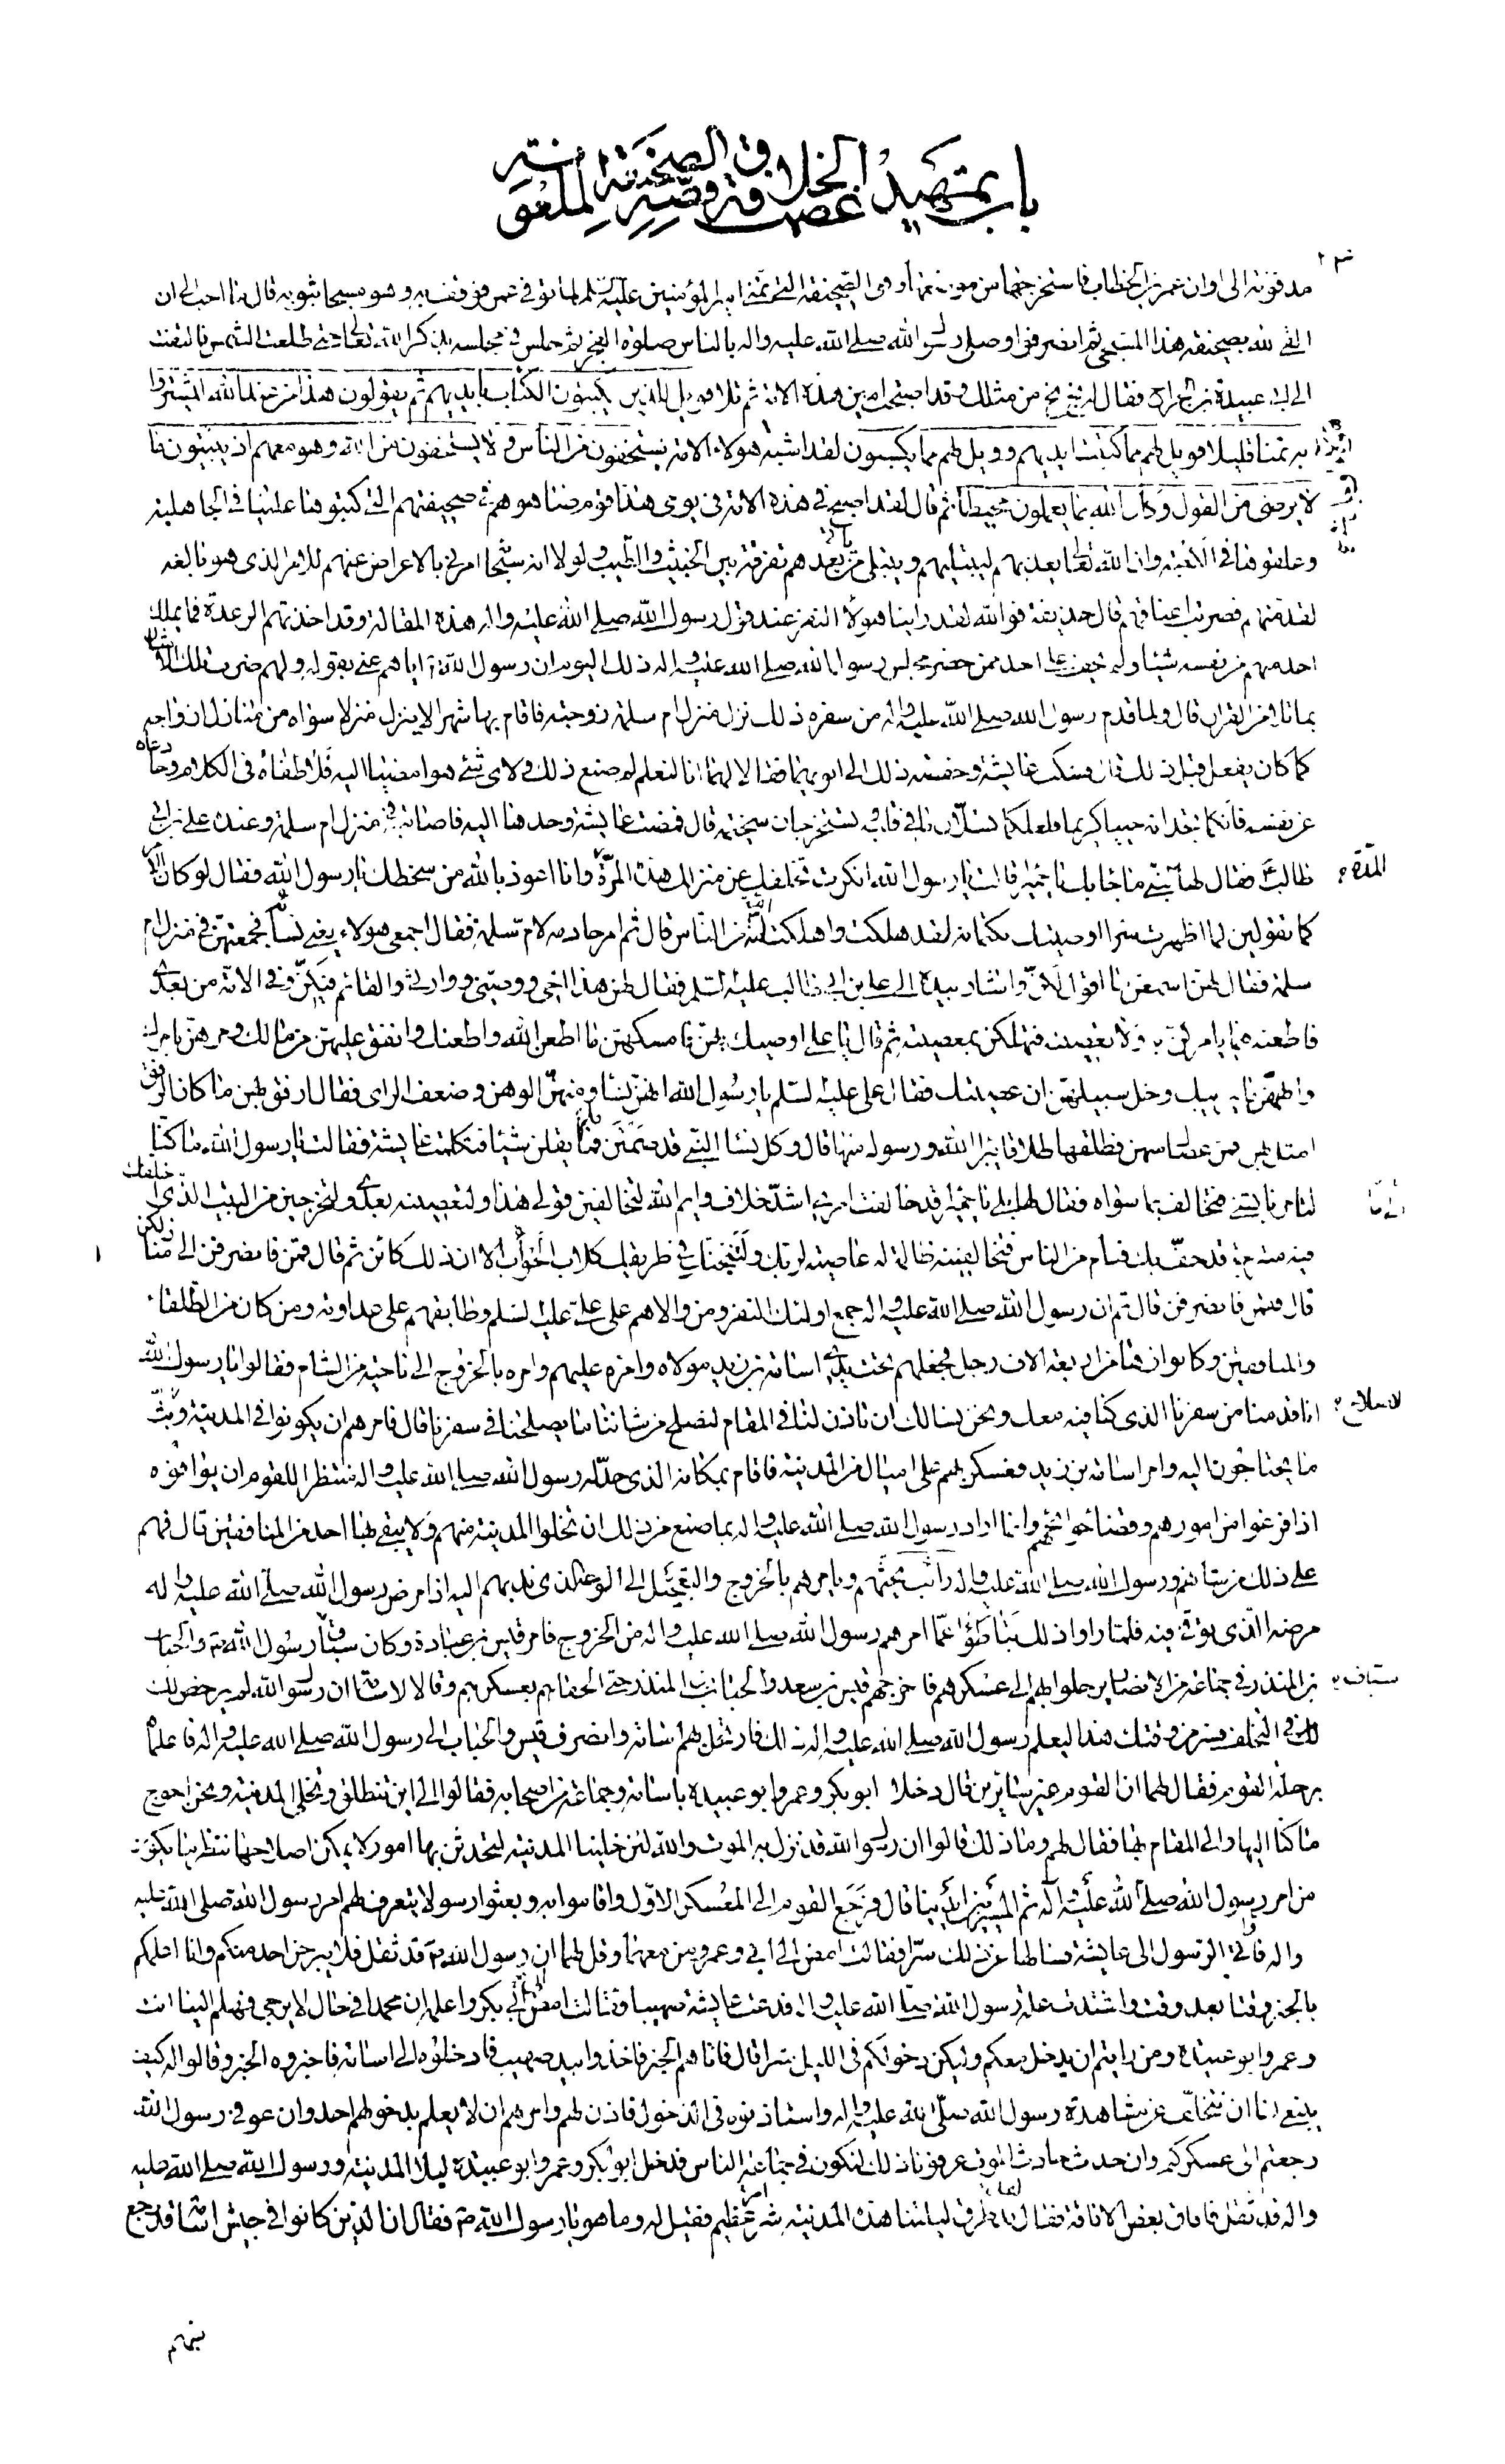 باب تمهيد الخلافة وقصة الصحيفة الملعونة
مدفونة الى اوان عمر بن الخطاب فاستخرجها من موضعها وهى الصحيفة التى تمنى امير المؤمنين عليه السلم لما توفى عمر فوقف به وهو مسجى بثوبه قال ما احب الى ان
القى الله بصحيفة هذا المسجى ثم انصرفوا وصلى رسول الله صلى الله عليه واله بالناس صلوة الفجر ثم جلس فى مجلسه يذكر الله تعالى حتى طلعت الشمس فالتفت
الى ابى عبيدة بن الجراح فقال له بخ بخ من مثلك وقد اصبحت امين هذه الامة ثم تلا فويل للذين يكتبون الكتاب بايديهم ثم يقولون هذا من عند الله ليشتروا
به ثمنا قليلا فويل لهم مما كتبت ايديهم وويل لهم مما يكسبون لقد اشبه هولاء الامة يستخفون من الناس ولا يستخفون من الله وهو معهم اذ يبيتون ما
لا يرضى من القول وكان الله بما يعملون محيطا ثم قال لقد اصبح فى هذه الامة فى يومى هذا قوم ضاهوهم فى صحيفتهم التى كتبوها علينا فى الجاهلية
وعلقوها فى الكعبة وان الله تعالى يعذبهم ليبتليهم ويبتلى من ياتى بعدهم تفرقة بين الخبيث والطيب ولولا انه سبحانه امرنى بالاعراض عنهم للامر الذى هو بالغه
لقدمتهم فضربت اعناقهم قال حذيفة فوالله لقد راينا هولاء النفر عند قول رسول الله صلى الله عليه واله هذه المقالة وقد اخذتهم الرعدة فما يملك
احد منهم من نفسه شيئا ولم يخف على احد ممن حضر مجلس رسول الله صلى الله عليه واله ذلك اليوم ان رسول الله ص اياهم عنى بقوله ولهم ضرب تلك الامثال
بما تلا من القران قال ولما قدم رسول الله صلى الله عليه واله من سفره ذلك نزل منزل ام سلمة زوجته فاقام بها شهرا لا ينزل منزلا سواه من منازل ازواجه
كما كان يفعل قبل ذلك قال فشكت عايشة وحفصة ذلك الى ابويهما فقالا لهما انا لنعلم لم صنع ذلك ولاى شئ هو امضيا اليه فلاطفاه فى الكلام وخادعاه
عن نفسه فانكما تجدانه حييا كريما فلعلكما تسلان ما فى قلبه وتستخرجان سخيمته قال فمضت عايشة وحدها اليه فاصابته فى منزل ام سلمة وعنده على بن ابى
طالب ع فقال لها النبى ما جاء بك يا حميراء قالت يا رسول الله انكرت تخلفك عن منزلك هذه المرة وانا اعوذ بالله من سخطك يا رسول الله فقال لو كان الامر
كما تقولين لما اظهرت سرا اوصيتك بكتمانه لقد هلكت واهلكت امة من الناس قال ثم امر خادمة لام سلمة فقال اجمعى هولاء يعنى نساءه فجمعتهن فى منزل ام
سلمة فقال لهن اسمعن ما اقول لكن واشار بيده الى على بن ابى طالب عليه السلم فقال لهن هذا اخى ووصيى ووارثى والقائم فيكن وفى الامة من بعدى
فاطعنه فيما يامركن به ولا تعصينه فتهلكن بمعصيته ثم قال يا على اوصيك بهن فامسكهن ما اطعن الله واطعنك وانفق عليهن من مالك ومرهن بامرك
وانههن عما يريبك وخل سبيلهن ان عصينك فقال على عليه السلم يا رسول الله انهن نساء وفيهن الوهن وضعف الراى فقال ارفق بهن ما كان الرفق
امثل بهن فمن عصاك منهن فطلقها طلاقا يبرا الله ورسوله منها قال وكل نساء النبى قد صمتن فما يقلن شيئا فتكلمت عايشة فقالت يا رسول الله ما كنا
لتامرنا بشئ فنخالفه بما سواه فقال لها بلى يا حميراء قد خالفت امرى اشد خلاف وايم الله لتخالفين قولى هذا ولتعصينه بعدى ولتخرجين من البيت الذى اخلفك
فيه متبرجة قد حف بك فئام من الناس فتخالفينه ظالمة له عاصية لربك ولتنبحنك فى طريقك كلاب الحوأب الا ان ذلك كائن ثم قال قمن فانصرفن الى منازلكن
قال فقمن فانصرفن قال ثم ان رسول الله صلى الله عليه واله جمع اولئك النفر ومن والاهم على على عليه السلم وطابقهم على عداوته ومن كان من الطلقاء
والمنافقين وكانوا زهاء من اربعة الاف رجل فجعلهم تحت يدى اسامة بن زيد مولاه وامره عليهم وامره بالخروج الى ناحية من الشام فقالوا يا رسول الله
انا قدمنا من سفرنا الذى كنا فيه معك ونحن نسالك ان تاذن لنا فى المقام لنصلح من شاننا ما يصلحنا فى سفرنا قال فامرهم ان يكونوا فى المدينة ريث
ما يحتاجون اليه وامر اسامة بن زيد فعسكر بهم على اميال من المدينة فاقام بمكانه الذى حد له رسول الله صلى الله عليه واله منتظرا للقوم ان يوافوه
اذا فرغوا من امورهم وقضاء حوائجهم وانما اراد رسول الله صلى الله عليه واله بما صنع من ذلك ان تخلوا المدينة منهم ولا يبقى بها احد من المنافقين قال فهم
على ذلك من شانهم ورسول الله صلى الله عليه واله رائب يحثهم ويامرهم بالخروج والتعجيل الى الوجه الذى ندبهم اليه اذ مرض رسول الله صلى الله عليه واله
مرضه الذى توفى فيه فلما راوا ذلك تباطؤا عما امرهم رسول الله صلى الله عليه واله من الخروج فامر قيس بن عبادة وكان سياف رسول الله ص والحباب
بن المنذر فى جماعة من الانصار ان يرحلوا بهم الى عسكرهم فاخرجهم قيس بن سعد والحباب بن المنذر حتى الحقاهم بعسكرهم وقالا لاسامة ان رسول الله لم يرخص لك
فى التخلف فسر من وقتك هذا ليعلم رسول الله صلى الله عليه واله ذلك فارتحل بهم اسامة وانصرف قيس والحباب الى رسول الله صلى الله عليه واله فاعلماه
برحلة القوم فقال لهما ان القوم غير سائرين قال فخلا ابو بكر وعمر وابو عبيدة باسامة وجماعة من اصحابه فقالوا الى اين تنطلق وتخلى المدينة ونحن احوج
ما كنا اليها والى المقام بها فقال لهم وما ذلك قالوا ان رسول الله قد نزل به الموت والله لئن خلينا المدينة لتحدثن بها امور لا يمكن اصلاحها ننظر ما يكون
من امر رسول الله صلى الله عليه واله ثم المسير بين ايدينا قال فرجع القوم الى المعسكر الاول واقاموا به وبعثوا رسولا يتعرف لهم امر رسول الله صلى الله عليه
واله فاتى الرسول الى عايشة فسالها عن ذلك سرا فقالت امض الى ابى وعمر ومن معهما وقل لهما ان رسول الله ص قد ثقل فلا يبرحن احد منكم وانا اعلمكم
بالخبر وقتا بعد وقت واشتدت علة رسول الله صلى الله عليه واله فدعت عايشة صهيبا فقالت امض الى ابى بكر واعلمه ان محمدا فى حال لا يرجى فهلم الينا انت
وعمر وابو عبيدة ومن رايتم ان يدخل معكم وليكن دخولكم فى الليل سرا قال فاتاهم الخبر فاخذوا بيد صهيب فادخلوه الى اسامة فاخبروه الخبر وقالوا له كيف
ينبغى لنا ان نتخلف عن مشاهدة رسول الله صلى الله عليه واله واستاذنوه فى الدخول فاذن لهم وامرهم ان لا يعلم بدخولهم احد وان عوفى رسول الله
رجعتم الى عسكركم وان حدث حادث الموت عرفونا ذلك لنكون فى جماعة الناس فدخل ابو بكر وعمر وابو عبيدة ليلا المدينة ورسول الله صلى الله عليه
واله قد ثقل فافاق بعض الافاقة فقال لقد طرق ليلتنا هذه المدينة شر عظيم فقيل له وما هو يا رسول الله ص فقال ان الذين كانوا فى جيش اسامة قد رجع
منهم